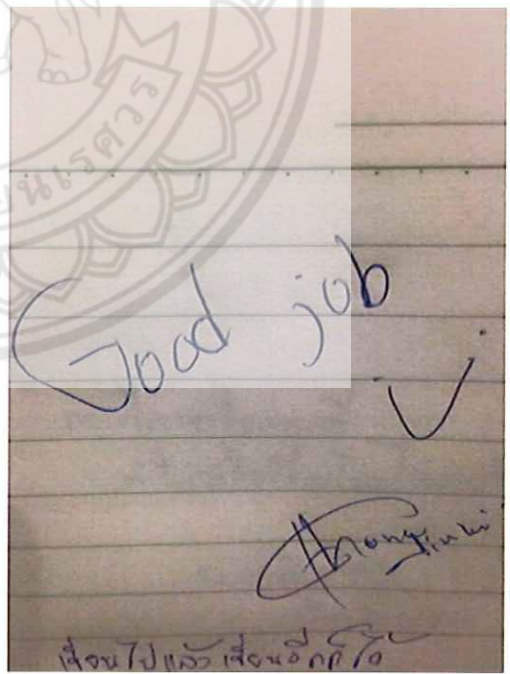 Good job
เขียนไปแล้ว เขียนอีกก็ได้